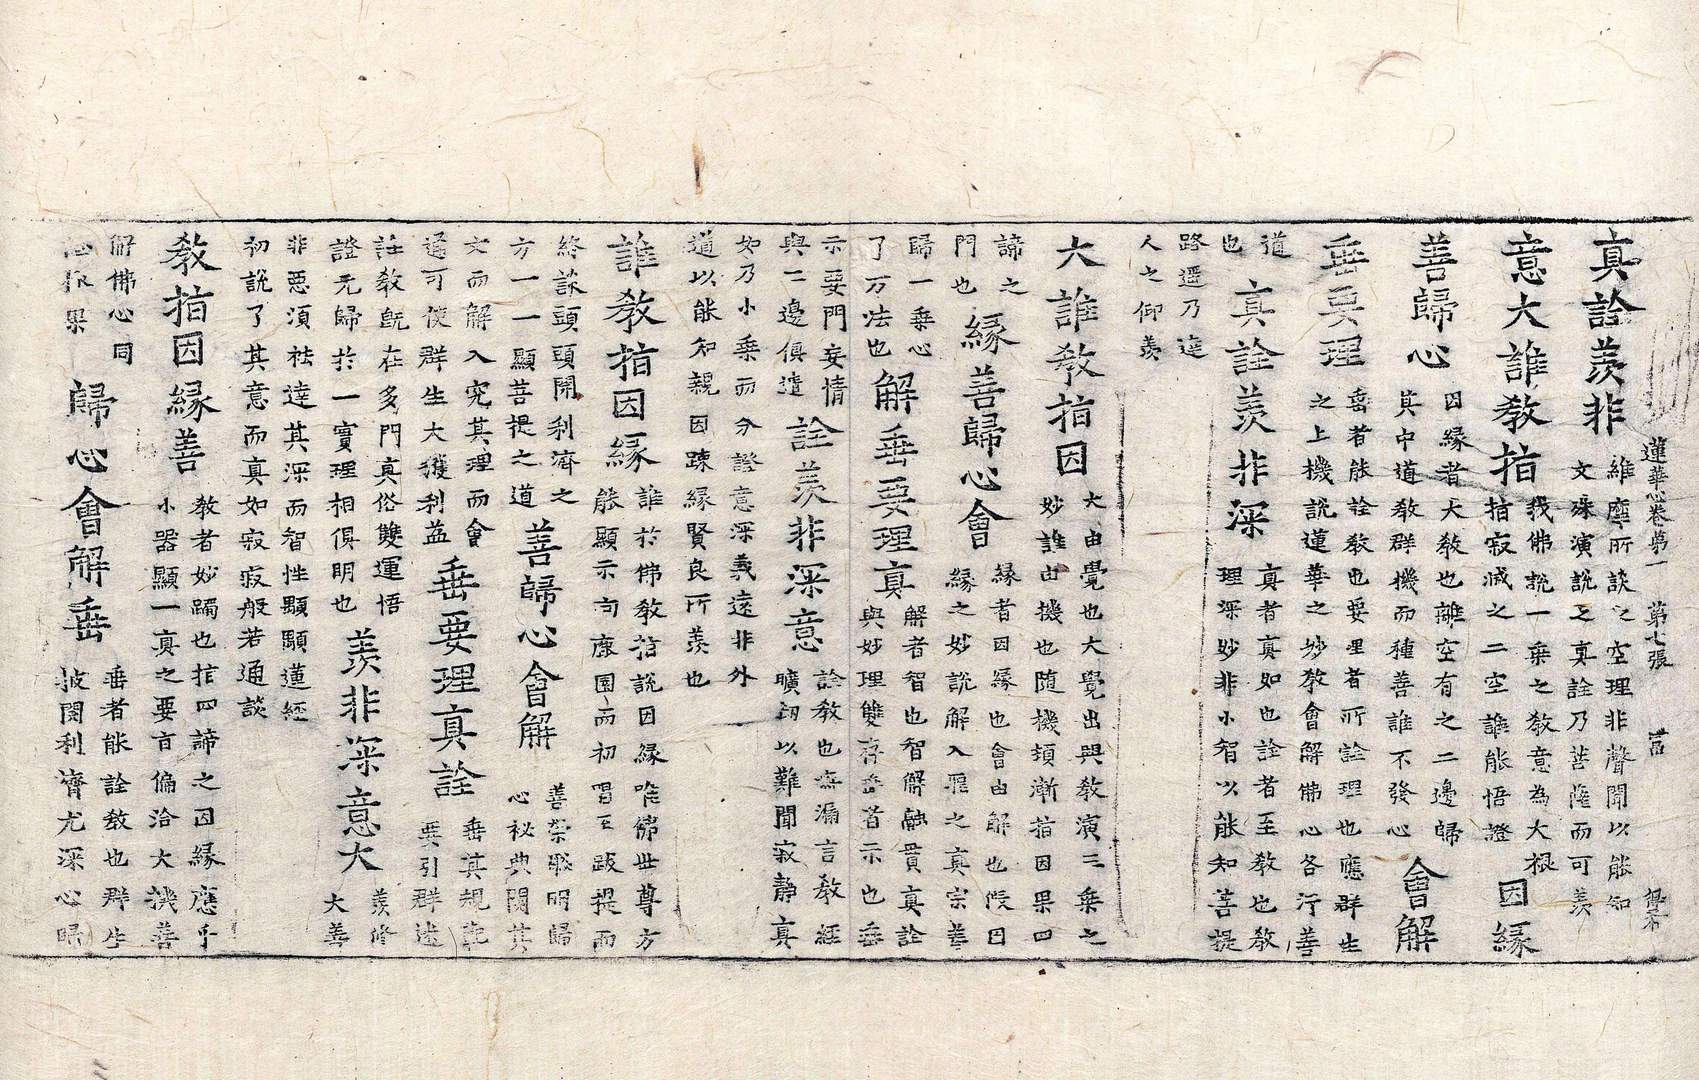 蓮華心卷第一　第七張
真詮羨非
維摩所談之空理非聲聞以能知
文殊演說之真詮乃菩薩而可羨
意大誰教指
我佛說一乘之教意為大根
指寂滅之二空誰能悟證
因緣
善歸心
因緣者大教也離空有之二邊歸
其中道教群機而種善誰不發心
會解
垂要理
垂者能詮教也要理者所詮理也應群生
之上機說蓮華之妙教會解佛心各行菩
道
也
真詮羨非深
真者真如也詮者至教也教
理深妙非小智以能知菩提
路遥乃達
人之仰羨
大誰教指因
大由覺也大覺出興教演三乘之
妙誰由機也隨機頓漸指因果四
諦之
門也
緣善歸心會
緣者因緣也會由解也假因
緣之妙說解入罪之真宗善
歸一乘心
了万法也
解垂要理真
解者智也智解融貫真詮
與妙理雙存垂者示也垂
示要門妄情
與二邊俱遣
詮羨非深意
詮教也無漏言教經
曠劫以難聞寂靜真
如乃小乘而分證意深義遠非外
道以能知親因疎緣賢良所羨也
誰教指因緣
誰於佛教指說因緣唯佛世尊方
能顯示句鹿園而初唱至跋提而
終談頭頭開利濟之
方一一顯菩提之道
善歸心會解
善崇明歸
心秘典閱其
文而解入究其理而會
通可使群生大獲利益
垂要理真詮
垂其規範
要引群迷
詮教既在多門真俗雙運悟
證无歸於一實理相俱明也
羨非深意大
羨修
大善
非惡須祛達其深而智性顯顯蓮經
初說了其意而真如寂寂般若通談
教指因緣善
教者妙躅也指四諦之因緣應乎
小器顯一真之要旨偏洽大機善
解佛心同
果
歸心會解垂
垂者能詮教也群生
披閱利濟尤深心歸